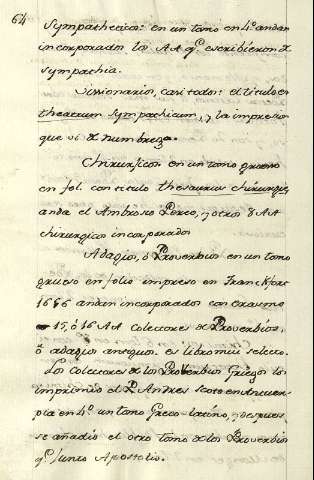 64
Sympatheticos: en un tomo en 4º andan
incorporados los AA qe. escribieron de
sympathia.
casi todos: el titulo es
theatrum sympathicum, y la impresion
que sé de
Chirurgicos en un tomo grueso
en fol. con titulo thesaurus chirurgiæ
anda el Ambrosio Pareo, y otros 8 AA
chirurgicos incorporados
Adagios, ò Proverbios en un tomo
grueso en folio impreso en Franckfort
1646 andan incorporados con erasmo
15, ò 16 AA colectores de Proverbios,
ô adagios antiguos. es libro mui selecto.
Los colectores de los Proverbios Griegos los
imprimio el P. Andres Scoto en Antuer-
pia en 4º un tomo Greco-latino, y despues
se añadio el otro tomo de los Proverbios
qe. junto Apostolio.